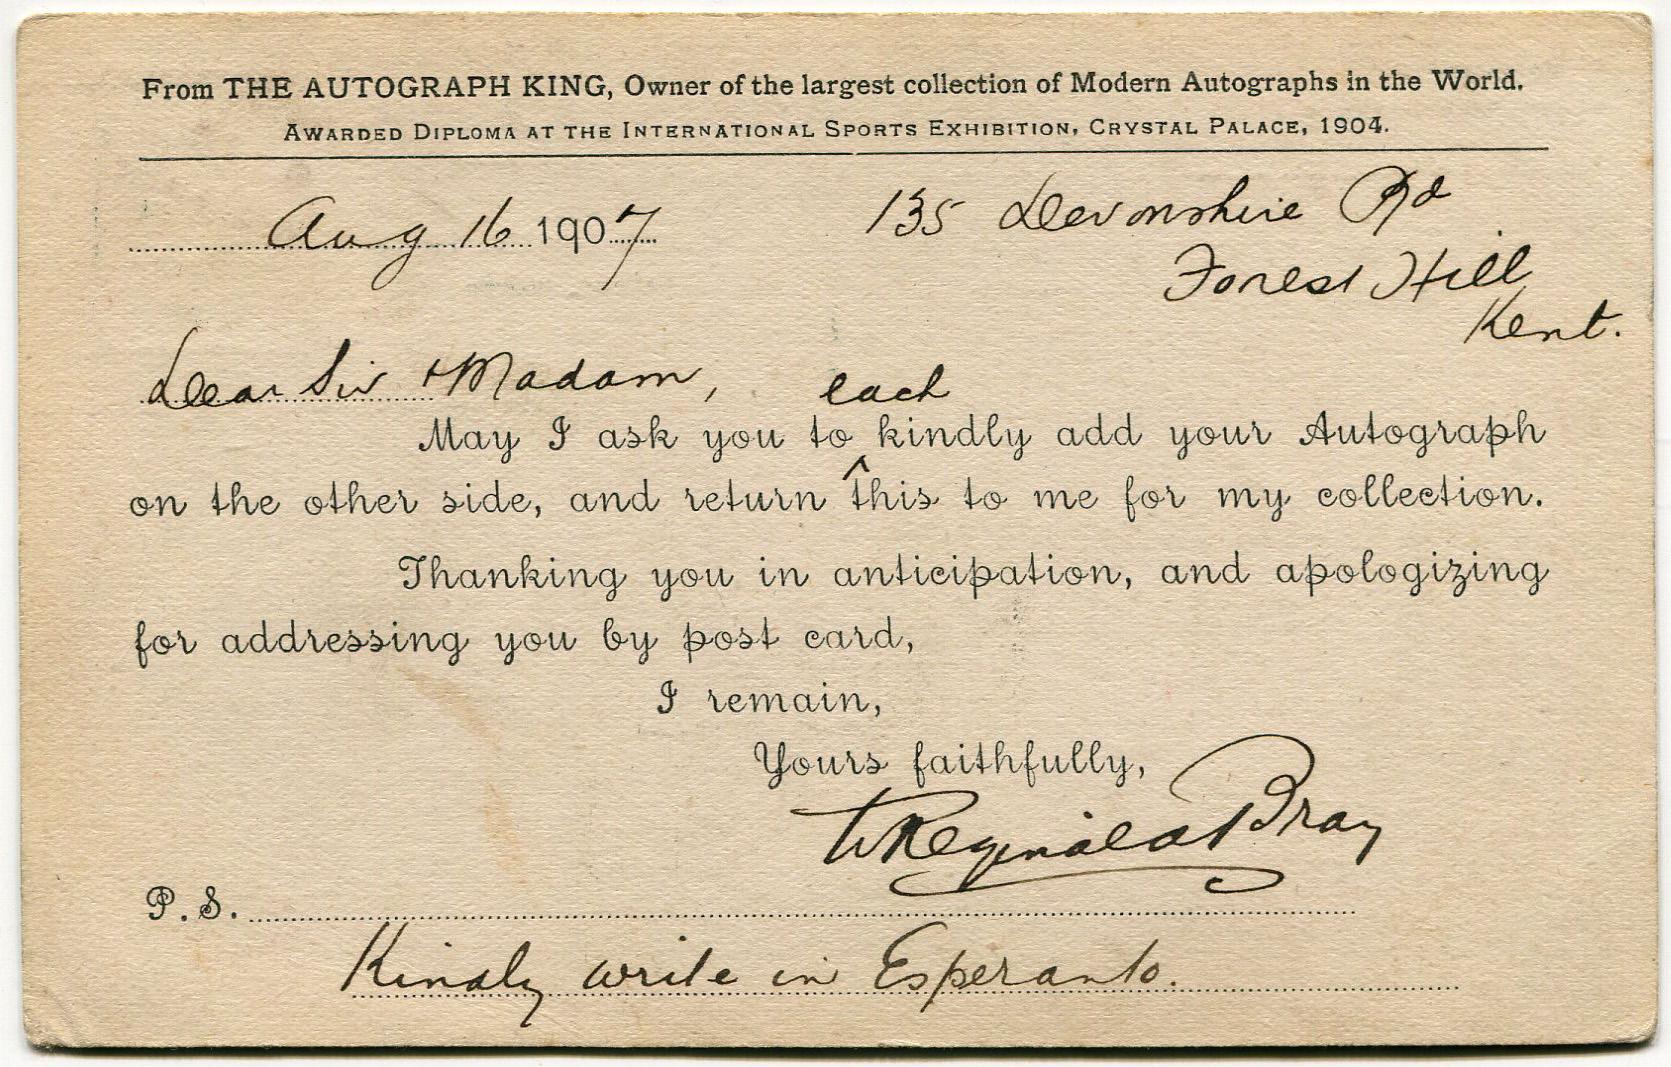 From THE AUTOGRAPH KING, Owner of the largest collection of Modern Autographs in the World.
AWARDED DIPLOMA AT THE INTERNATIONAL SPORTS EXHIBITION, CRYSTAL PALACE, 1904.
Aug 16 1907
135 Devonshire Rd
Forest Hill
Kent.
Dear Sir + Madam,
each
May I ask you to ^ kindly add your Autograph
on the other side, and return this to me for my collection.
Thanking you in anticipation, and apologizing
for addressing you by post card,
I remain,
Yours faithfully,
W Reginald Bray
P.S.
Kindly write in Esperanto.